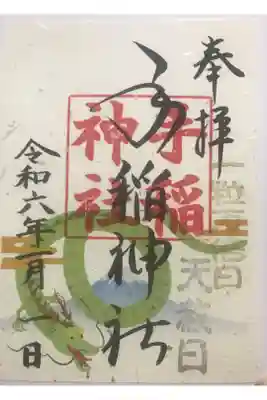 奉拝
一粒万倍日
天赦日
手稲神社
手稲
神社
令和六年一月一日